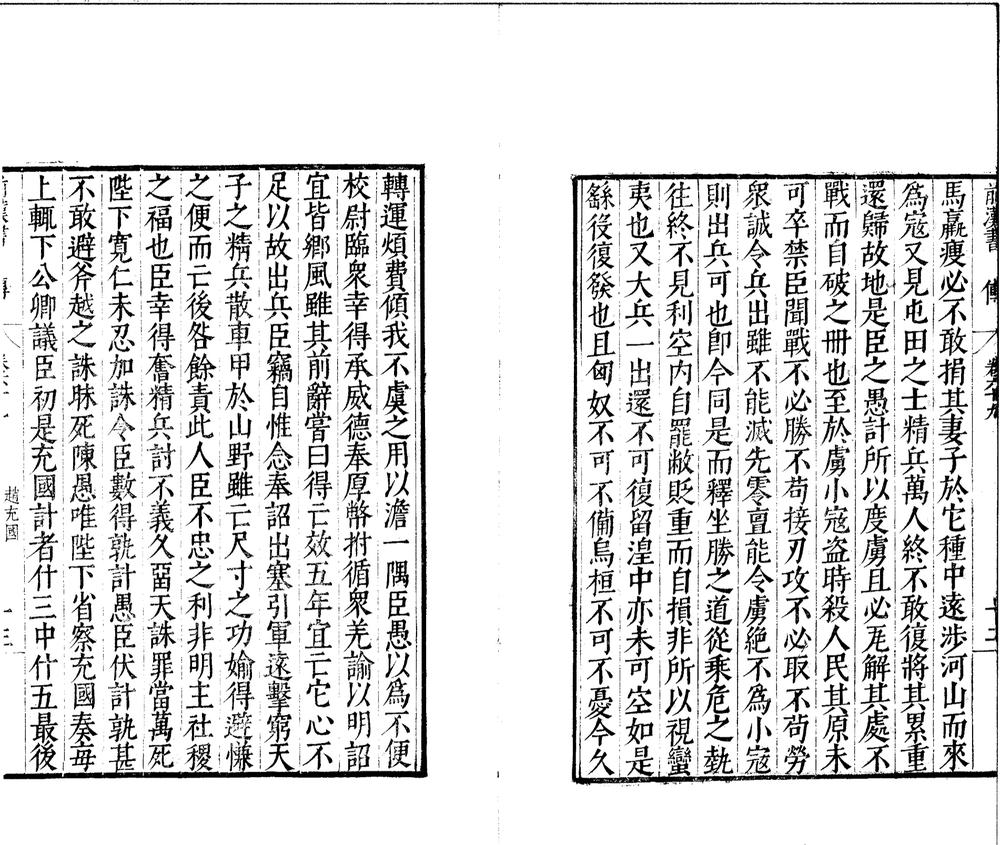 前漢書 傳 卷六十九 十三
馬羸瘦必不敢捐其妻子於它種中遠涉河山而來
爲寇又見屯田之士精兵萬人終不敢復將其累重
還歸故地是臣之愚計所以度虜且必瓦解其處不
戰而自破之冊也至於虜小寇盗時殺人民其原未
可卒禁臣聞戰不必勝不苟接刃攻不必取不苟勞
衆誠令兵出雖不能滅先零亶能令虜絶不爲小寇
則出兵可也卽今同是而釋坐勝之道從乘危之埶
往終不見利空内自罷敝貶重而自損非所以視蠻
夷也又大兵一出還不可復留湟中亦未可空如是
繇役復發也且匈奴不可不備烏桓不可不憂今久
轉運煩費傾我不虞之用以澹一隅臣愚以爲不便
校尉臨衆幸得承威德奉厚幣拊循衆羌諭以明詔
宜皆鄉風雖其前辭嘗曰得亡效五年宜亡它心不
足以故出兵臣竊自惟念奉詔出塞引軍遠擊窮天
子之精兵散車甲於山野雖亡尺寸之功媮得避慊
之便而亡後咎餘責此人臣不忠之利非明主社稷
之福也臣幸得奮精兵討不義久畱天誅罪當萬死
陛下寬仁未忍加誅令臣數得孰計愚臣伏計孰甚
不敢避斧越之誅昧死陳愚唯陛下省察充國奏每
上輒下公卿議臣初是充國計者什三中什五最後
趙充國